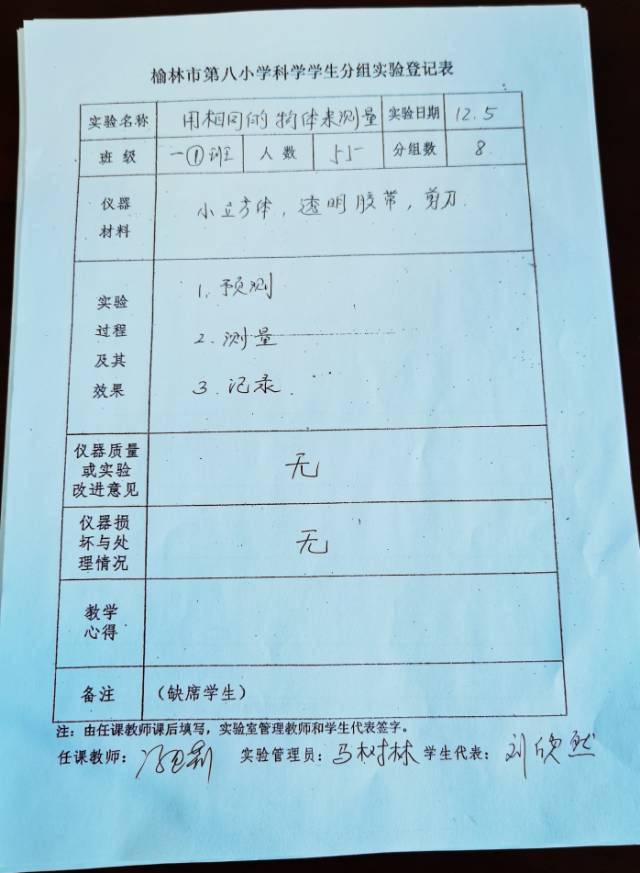 榆林市第八小学科学学生分组实验登记表
实验名称 用相同的物体来测量 实验日期 12.5
班级 一①班 人数 55 分组数 8
仪器材料 小立方体，透明胶带，剪刀.
实验过程及其效果
1.预测
2.测量
3.记录.
仪器质量或实验改进意见 无
仪器损坏与处理情况 无
教学心得
备注 （缺席学生）
注：由任课教师课后填写，实验室管理教师和学生代表签字。
任课教师： 实验管理员：马树林 学生代表：刘欣然